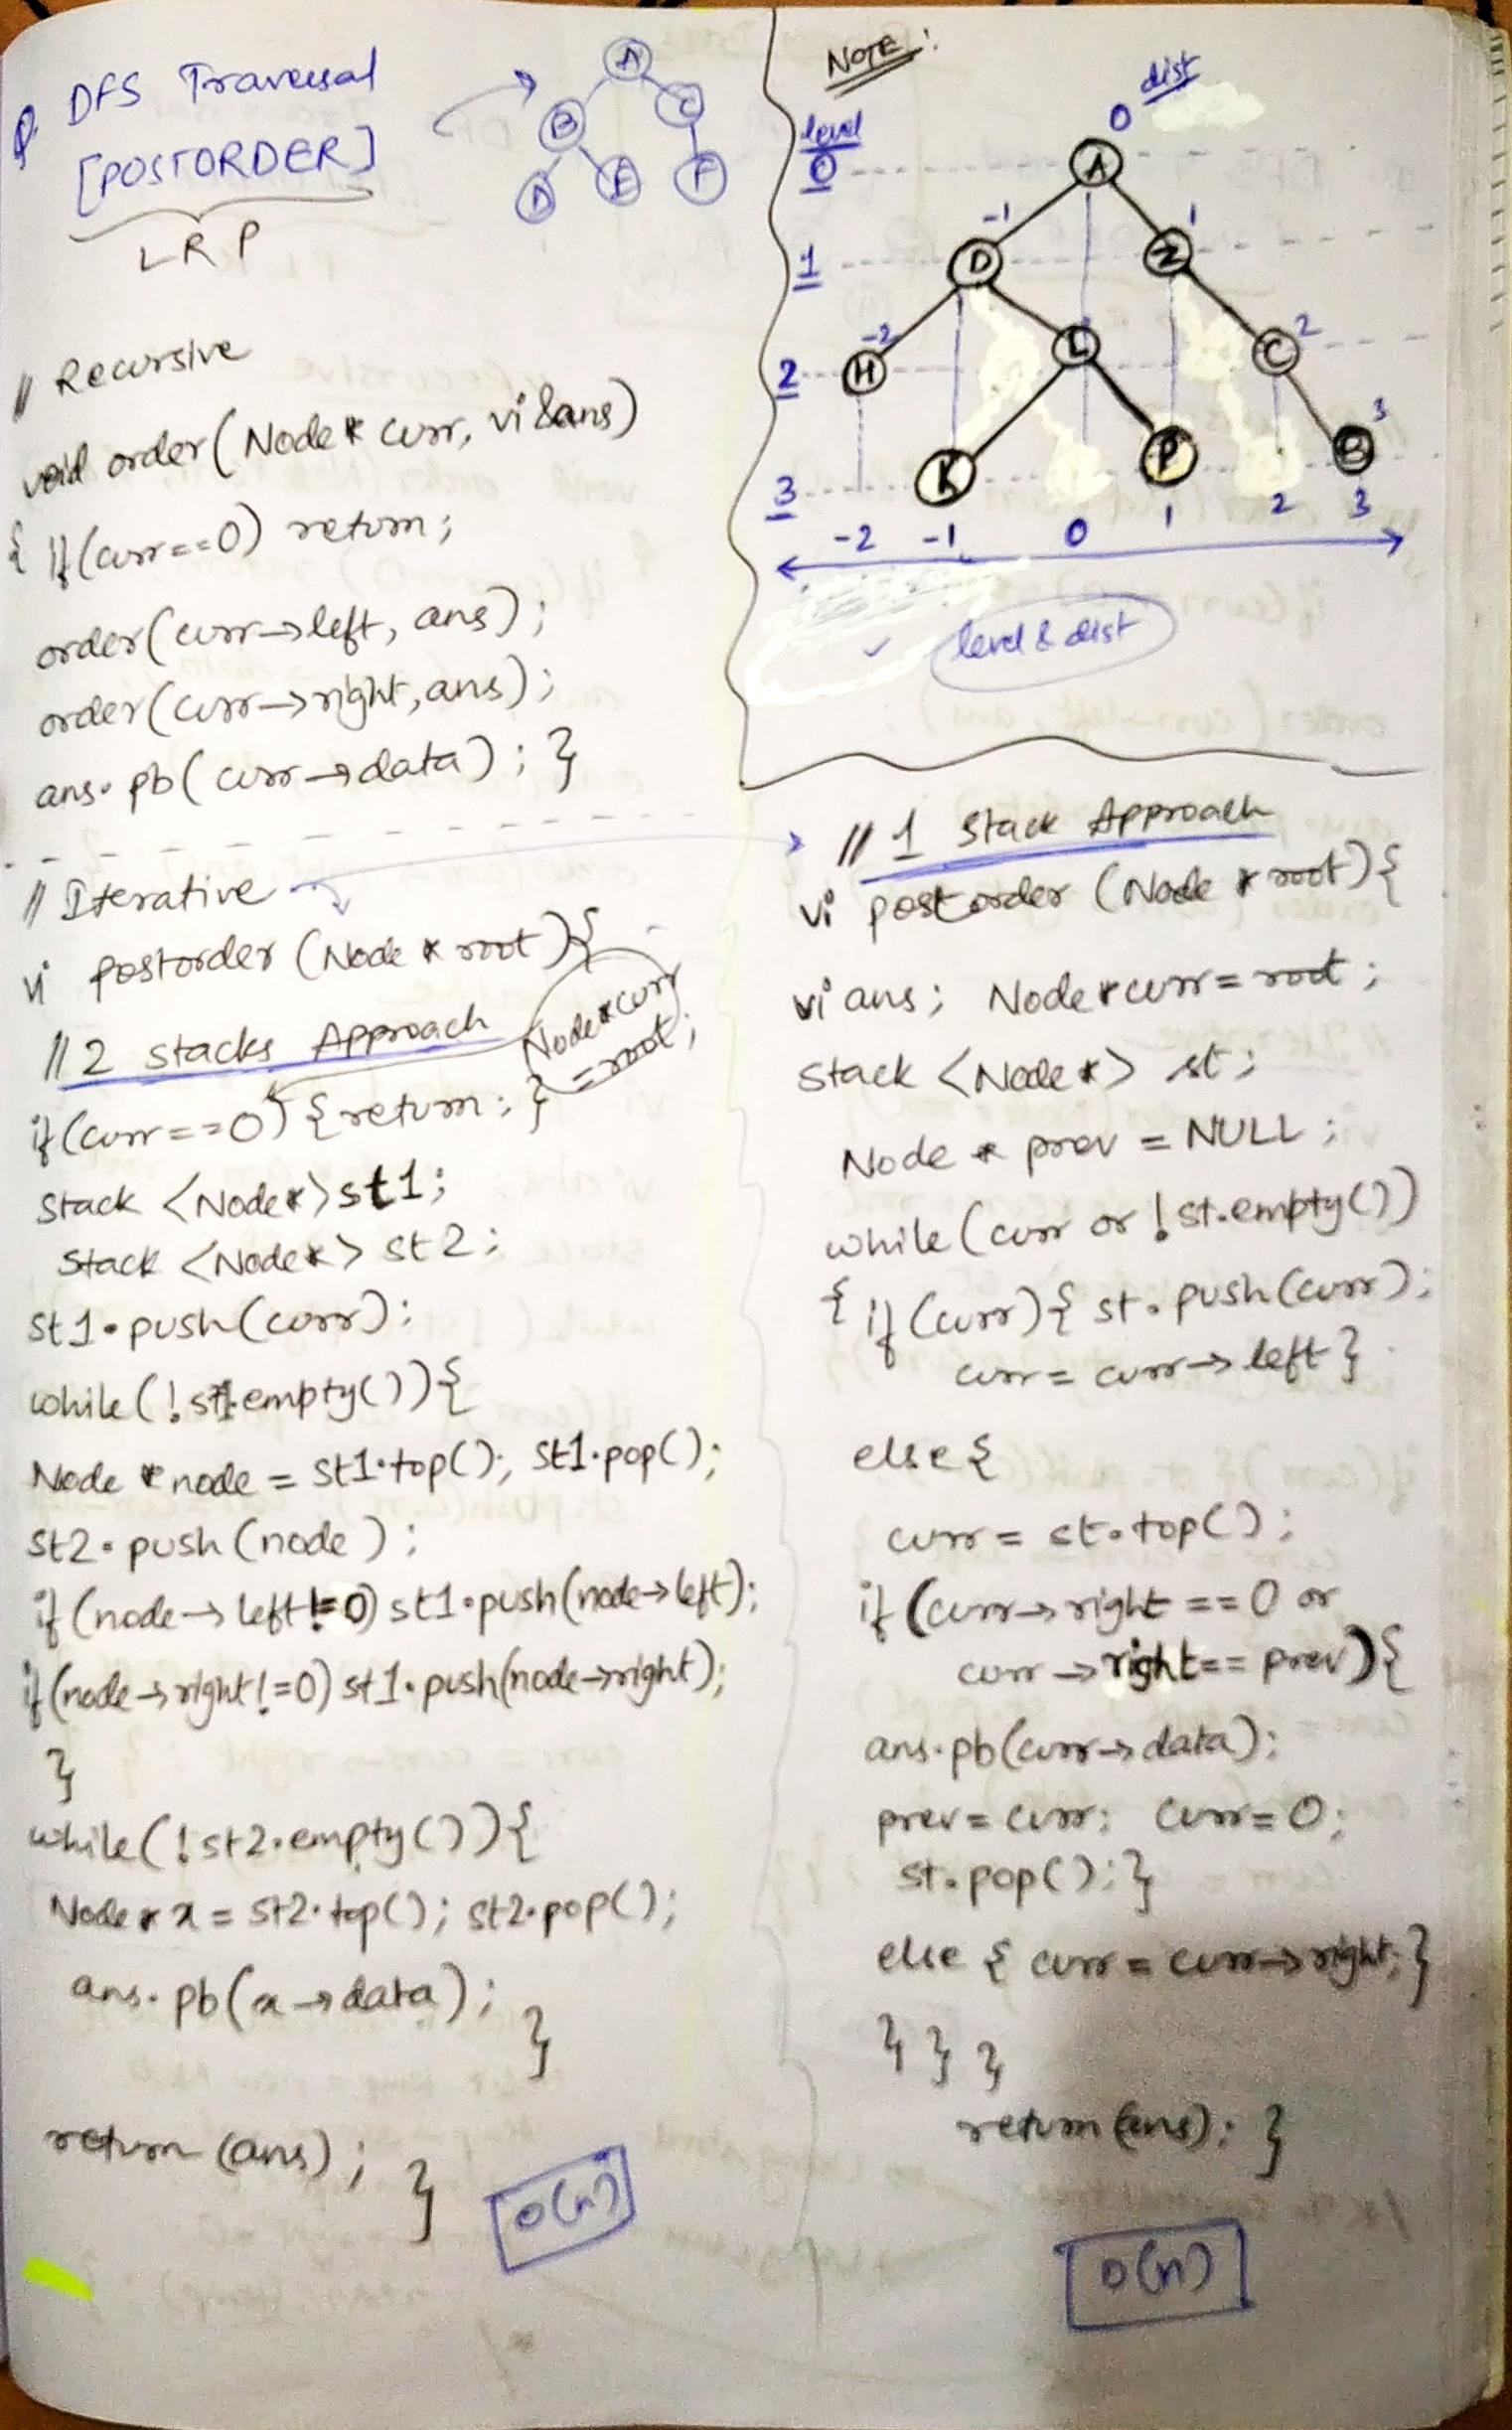 Q. DFS Traversal
[POSTORDER]
LRP
A
B C
D E F
// Recursive
void order(Node* curr, vi &ans)
{ if(curr==0) return;
order(curr→left, ans);
order(curr→right, ans);
ans.pb(curr→data); }
// Iterative
vi postorder (Node * root){
// 2 stacks Approach
Node*curr
=root;
if(curr==0) {return;}
Stack <Node*> st1;
Stack <Node*> st2;
st1.push(curr);
while(!st1.empty()){
Node * node = st1.top(); st1.pop();
st2.push(node);
if(node→left!=0) st1.push(node→left);
if(node→right!=0) st1.push(node→right);
}
while(!st2.empty()){
Node* x = st2.top(); st2.pop();
ans.pb(x→data);
}
return (ans); }
O(n)
NOTE:
dist
level 0
0 A
-1 1
1 D Z
-2 2
2 H L C
3
3 K P B
-2 -1 0 1 2 3
level & dist
// 1 Stack Approach
vi postorder (Node * root){
vi ans; Node*curr=root;
Stack <Node*> st;
Node * prev = NULL;
while(curr or !st.empty())
{ if(curr){ st.push(curr);
curr = curr→left }
else{
curr = st.top();
if(curr→right ==0 or
curr→right== prev){
ans.pb(curr→data);
prev=curr; curr=0;
st.pop();}
else { curr = curr→right;}
} } }
return(ans); }
O(n)